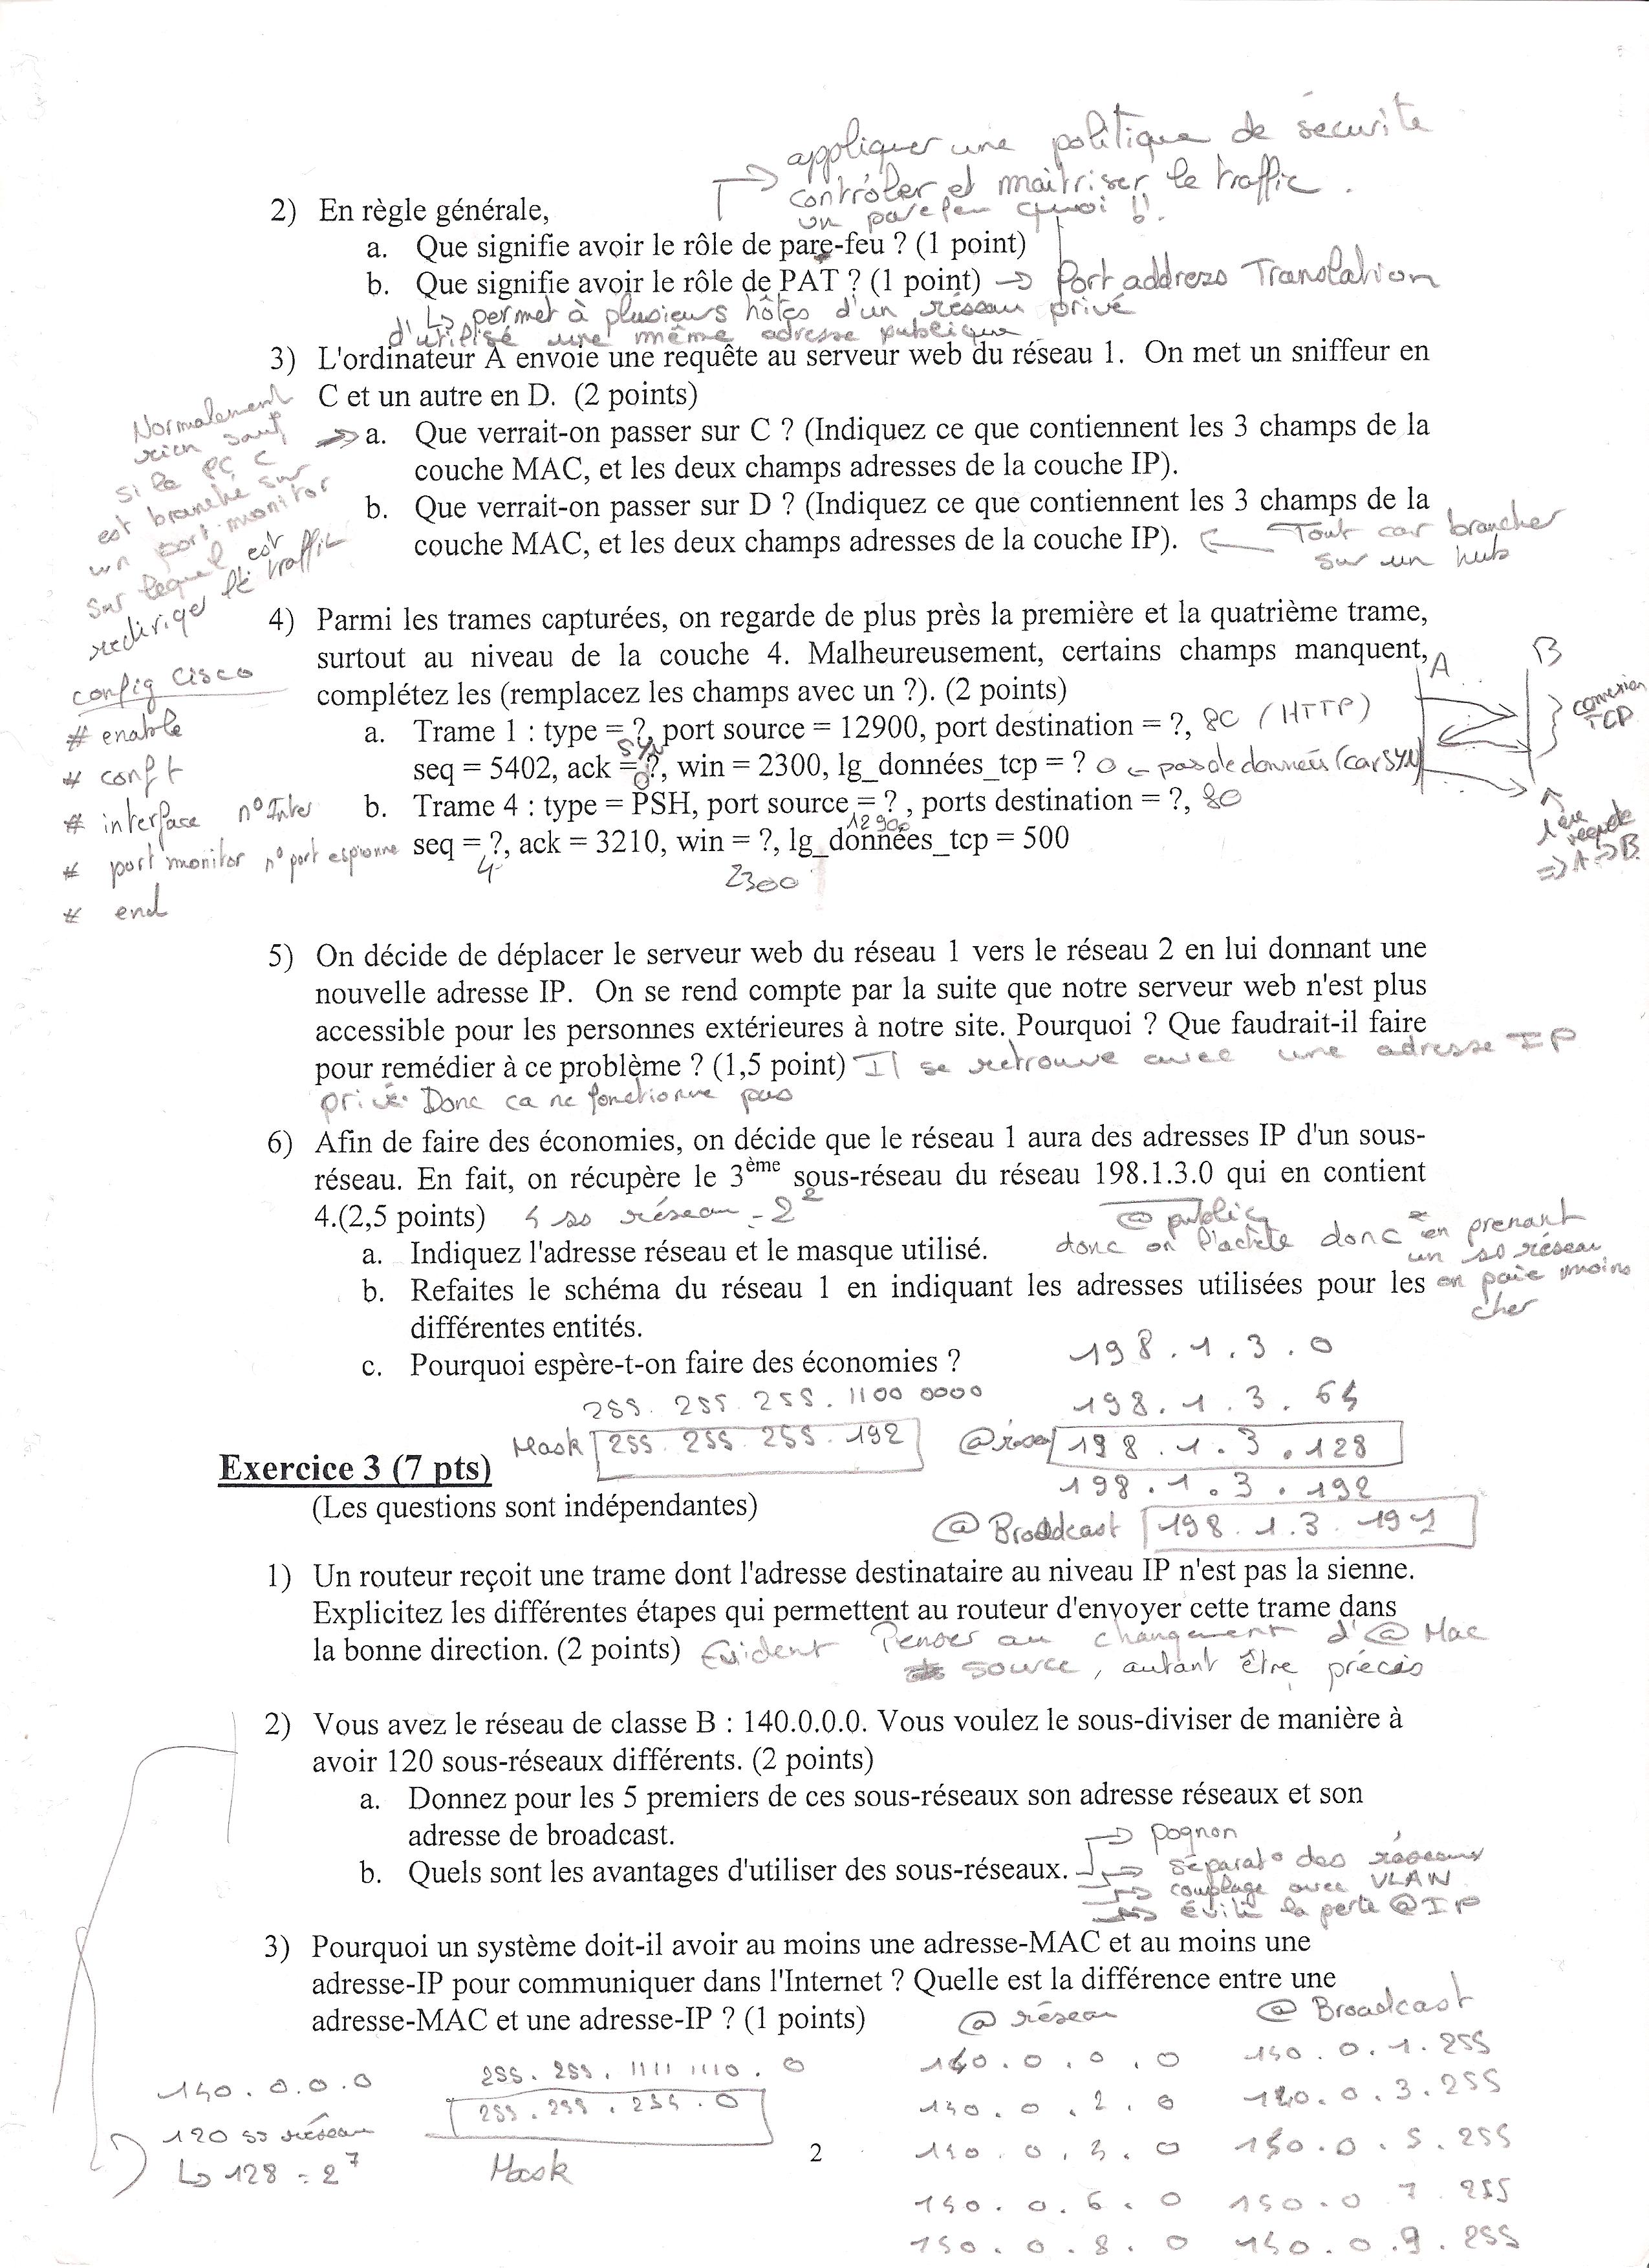 appliquer une politique de sécurité
contrôler et maîtriser le traffic.
un parefeu quoi !!.
2) En règle générale,
a. Que signifie avoir le rôle de pare-feu ? (1 point)
b. Que signifie avoir le rôle de PAT ? (1 point) → Port address Translation
↳ permet à plusieurs hôtes d'un réseau privé
d'utilisé une même adresse publique
3) L'ordinateur A envoie une requête au serveur web du réseau 1. On met un sniffeur en
C et un autre en D. (2 points)
a. Que verrait-on passer sur C ? (Indiquez ce que contiennent les 3 champs de la
couche MAC, et les deux champs adresses de la couche IP).
b. Que verrait-on passer sur D ? (Indiquez ce que contiennent les 3 champs de la
couche MAC, et les deux champs adresses de la couche IP).
Tout car brancher
sur un hub
Normalement
rien sauf
si le PC C
est branché sur
un port monitor
sur lequel est
rediriger le traffic
4) Parmi les trames capturées, on regarde de plus près la première et la quatrième trame,
surtout au niveau de la couche 4. Malheureusement, certains champs manquent,
complétez les (remplacez les champs avec un ?). (2 points)
a. Trame 1 : type = ?, port source = 12900, port destination = ?, 80 (HTTP)
SYN
seq = 5402, ack = ?, win = 2300, lg_données_tcp = ? 0 ← pas de données (car SYN)
0
b. Trame 4 : type = PSH, port source = ? , ports destination = ?, 80
12900
seq = ?, ack = 3210, win = ?, lg_données_tcp = 500
4
2300
A B
connexion
TCP
1ère
requete
=> A->B
config Cisco
# enable
# conf t
# interface n° Inter
# port monitor n° port espionne
# end
5) On décide de déplacer le serveur web du réseau 1 vers le réseau 2 en lui donnant une
nouvelle adresse IP. On se rend compte par la suite que notre serveur web n'est plus
accessible pour les personnes extérieures à notre site. Pourquoi ? Que faudrait-il faire
pour remédier à ce problème ? (1,5 point) Il se retrouve avec une adresse IP
privé. Donc ca ne fonctionne pas
6) Afin de faire des économies, on décide que le réseau 1 aura des adresses IP d'un sous-
réseau. En fait, on récupère le 3ème sous-réseau du réseau 198.1.3.0 qui en contient
4.(2,5 points) 4 ss réseau = 2²
@ public
donc on l'achète donc en prenant
un ss réseau
on paie moins
cher
a. Indiquez l'adresse réseau et le masque utilisé.
b. Refaites le schéma du réseau 1 en indiquant les adresses utilisées pour les
différentes entités.
c. Pourquoi espère-t-on faire des économies ?
198.1.3.0
255.255.255.1100 0000
198.1.3.64
Mask 255.255.255.192
@rés 198.1.3.128
198.1.3.192
@ Broadcast 198.1.3.191
Exercice 3 (7 pts)
(Les questions sont indépendantes)
1) Un routeur reçoit une trame dont l'adresse destinataire au niveau IP n'est pas la sienne.
Explicitez les différentes étapes qui permettent au routeur d'envoyer cette trame dans
la bonne direction. (2 points) Evident Penser au changement d'@ Mac
source, autant être précis
2) Vous avez le réseau de classe B : 140.0.0.0. Vous voulez le sous-diviser de manière à
avoir 120 sous-réseaux différents. (2 points)
a. Donnez pour les 5 premiers de ces sous-réseaux son adresse réseaux et son
adresse de broadcast.
b. Quels sont les avantages d'utiliser des sous-réseaux.
→ pognon
→ séparat° des réseaux
→ couplage avec VLAN
→ évite la perte @IP
3) Pourquoi un système doit-il avoir au moins une adresse-MAC et au moins une
adresse-IP pour communiquer dans l'Internet ? Quelle est la différence entre une
adresse-MAC et une adresse-IP ? (1 points)
@ réseau @ Broadcast
140.0.0.0 140.0.1.255
140.0.2.0 140.0.3.255
140.0.4.0 140.0.5.255
140.0.6.0 140.0.7.255
140.0.8.0 140.0.9.255
140.0.0.0
120 ss réseau
↳ 128 = 2⁷
255.255.1111 1110.0
255.255.254.0
Mask
2